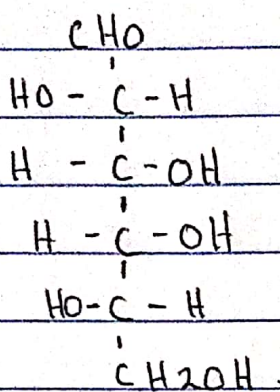 CHO
HO - C - H
H - C - OH
H - C - OH
HO - C - H
CH2OH